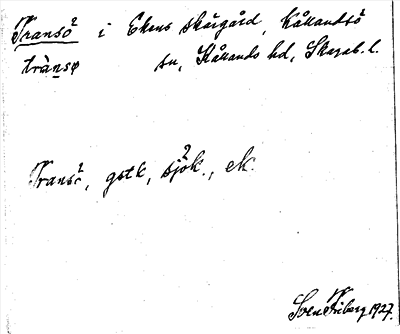 Transö² i Ekens skärgård, Kållandsö
trànsø sn, Kållands hd, Skarab. l.
Transö², gstk, sjök.², ek.
Sven Friberg 1927.